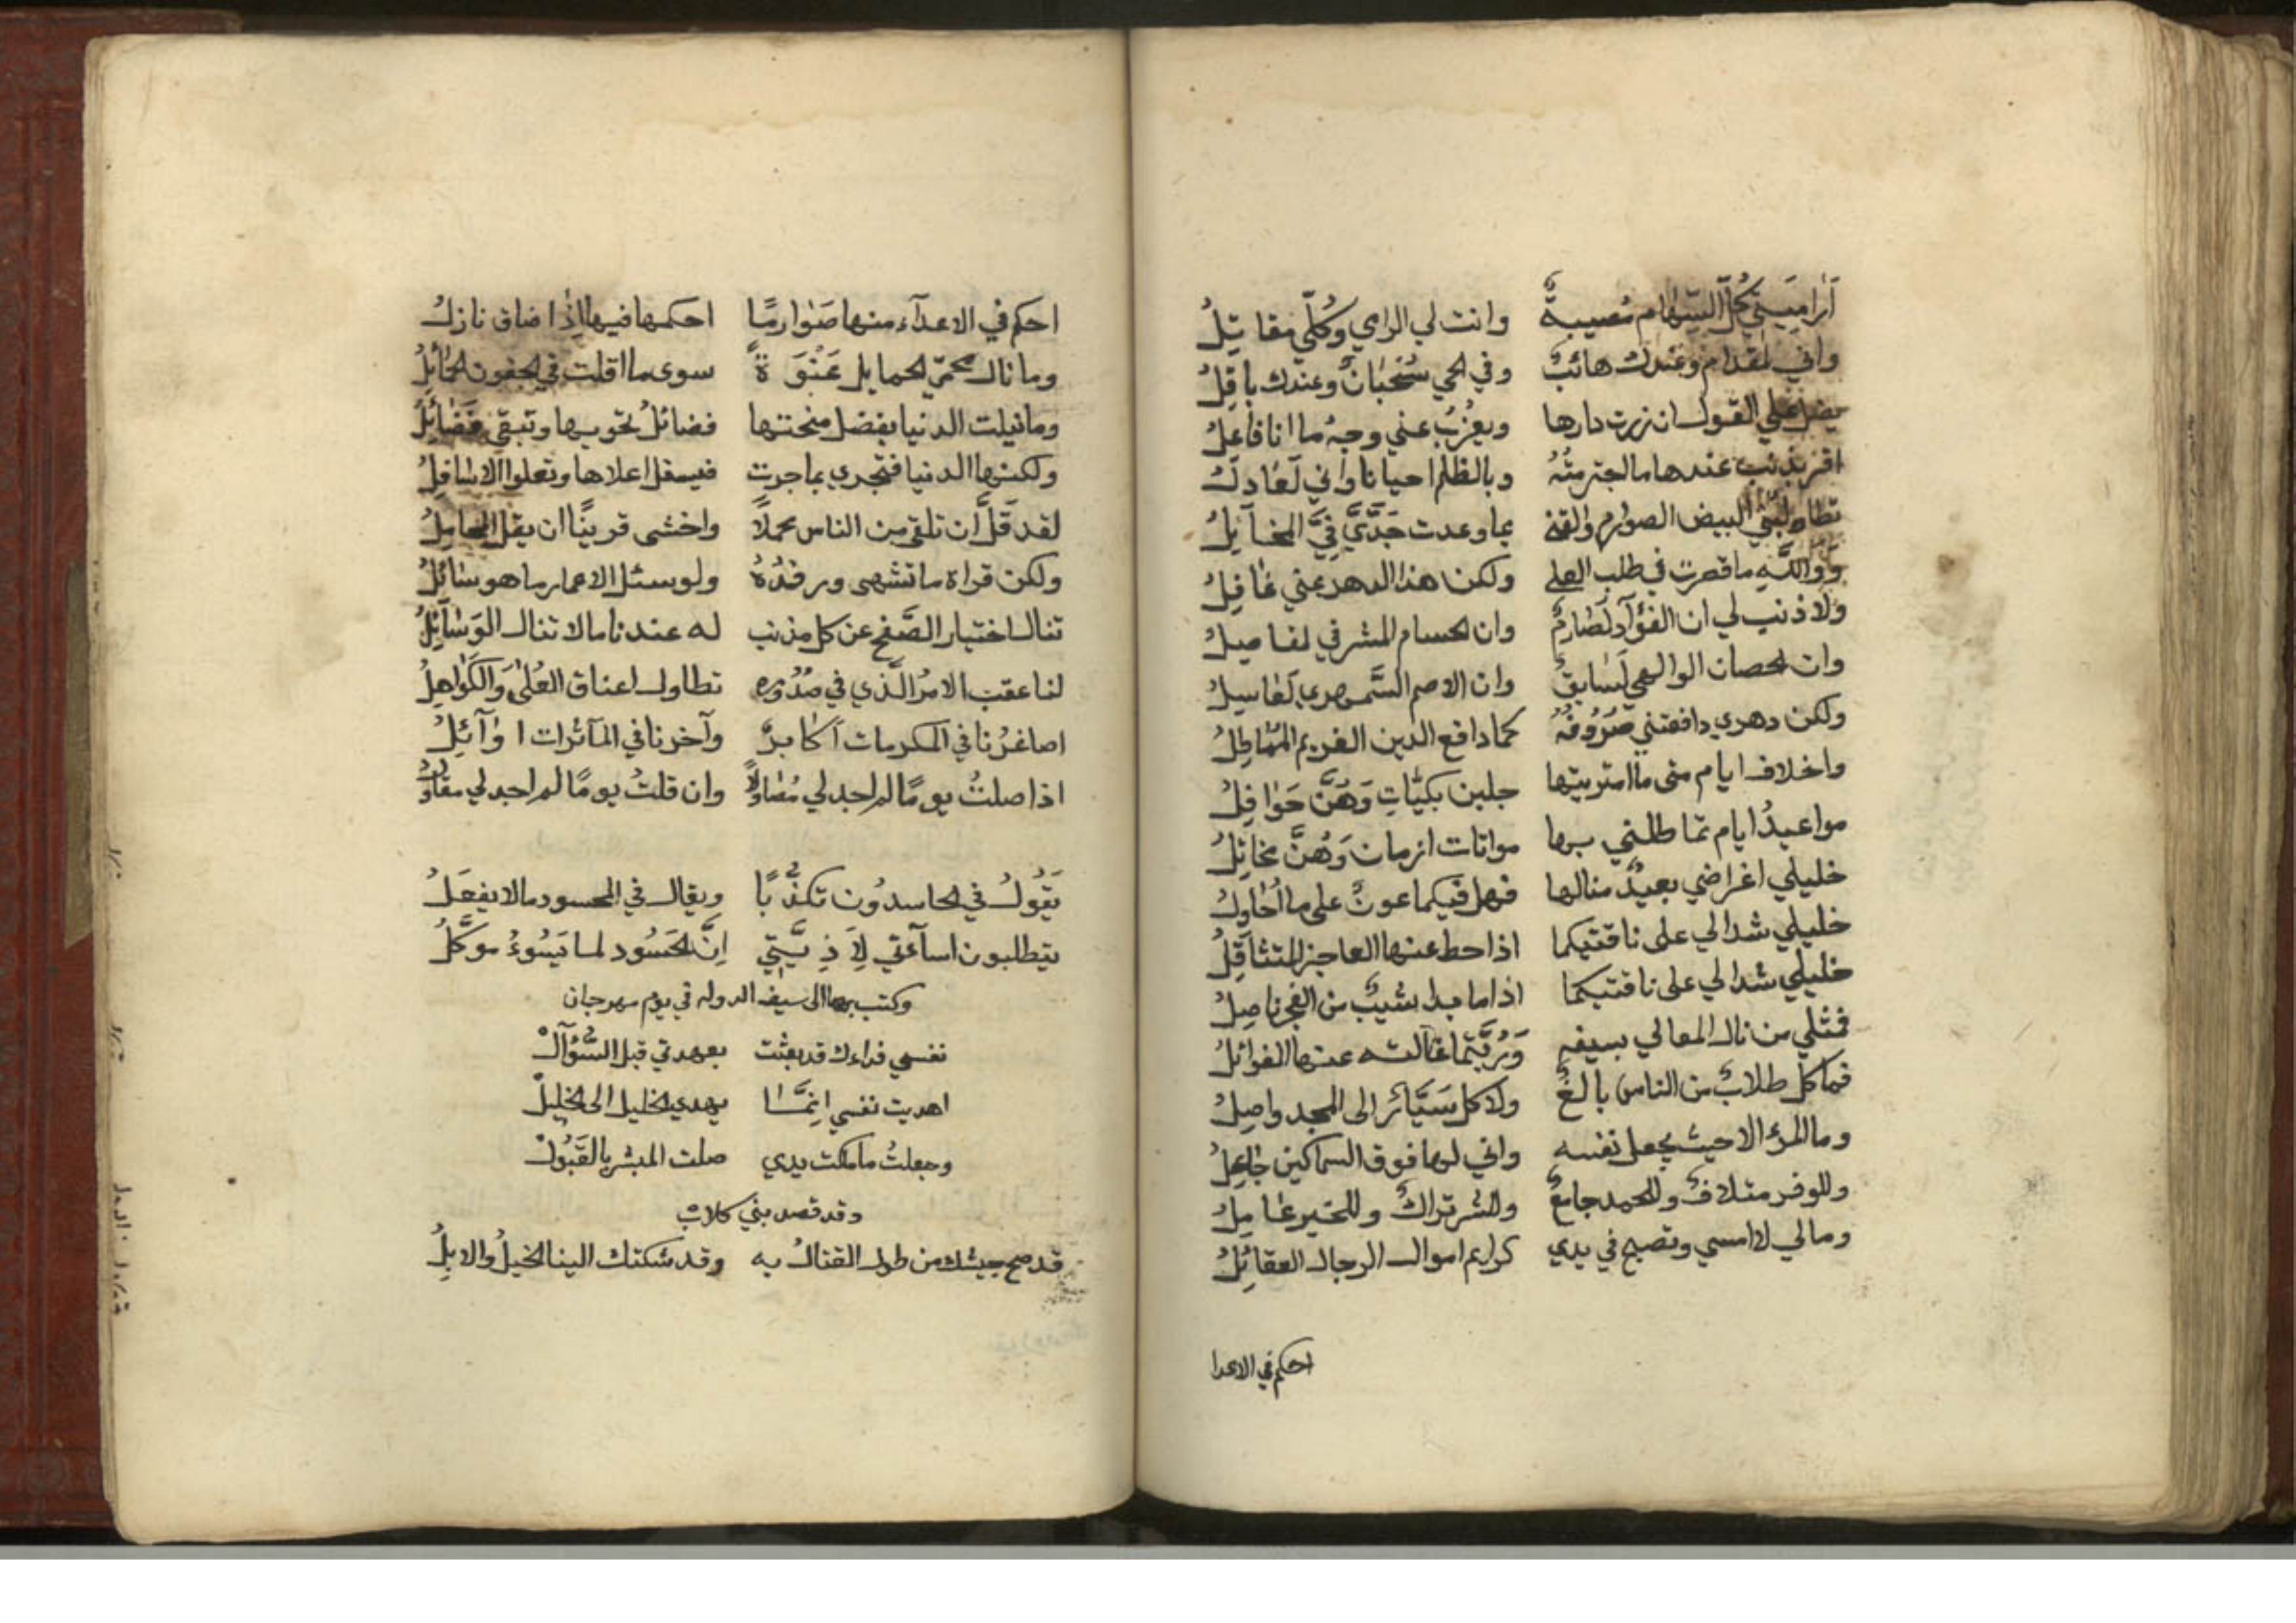 أراميتي كل السهام مصيبة وانت لي الرامي وكلي مقاتل
واني لمقدام وعندك هائب وفي الحي سحبان وعندك باقل
يضل علي القول ان زرت دارها ويعزب عني وجه ما انا فاعل
اقر بذنب عندها ما اجترمته وبالظلم احيانا واني لعادل
البيض الصوارم والقنى بما وعدت جدي في المخايل
ووالله ما قصرت في طلب العلى ولكن هذا الدهر عني غافل
ولا ذنب لي ان الفؤآد لصارم وان الحسام المشرفي لفاصل
وان الحصان الوالهي لسابق وان الاصم السمهري لعاسل
ولكن دهري دافعتني صروفه كما دافع الدين الغريم المماطل
واخلاف ايام متى ما امتريتها حلبن بكيات وهن حوافل
مواعيد ايام تماطلني بها مواتات ازمان وهن مخاتل
خليلي اغراضي بعيد منالها فهل فيكما عون على ما احاول
خليلي شدا لي على ناقتيكما اذا حط عنها العاجز المتثاقل
خليلي شدا لي على ناقتيكما اذا ما بدا شيب من الفجر ناصل
فمثلي من نال المعالي بسيفه وربتما غالته عنها الغوائل
فما كل طلاب من الناس بالغ ولا كل سيائر الى المجد واصل
وما المرء الا حيث يجعل نفسه واني لها فوق السماكين جاعل
وللوفر متلاف وللحمد جامع وللشر تراك وللخير عامل
ومالي لا امسي وتصبح في يدي كرايم اموال الرجال العقائل
احكم في الاعدا
احكم في الاعدآء منها صوارمًا احكمها فيها اذا ضاق نازل
وما نال محمي الحمايل عنوة سوى ما اقلت في الجفون الحمائل
وما نيلت الدنيا بفضل منحتها فضائل تحويها وتبقى فضائل
ولكنها الدنيا فتجري بما جرت فيسفل اعلاها وتعلوا الاسافل
لقد قل ان تلقى من الناس محملا واخشى قريبًا ان يقل المحامل
ولكن قراه ما تشهى ورفده ولو سئل الاعمار ما هو سائل
تنال اختيار الصفح عن كل مذنب له عندنا ما لا تنال الوسآئل
لنا عقب الامر الذي في صدوره تطاول اعناق العلى والكواهل
اصاغرنا في المكرمات أكابر وآخرنا في المآثرات اوآئل
اذا صلت يومًا لم اجد لي مصاولا وان قلت يومًا لم اجد لي مقاول
يقول في الحاسدون تكذبًا ويقال في المحسود ما لا يفعل
يتطلبون اسآءتي لاذيتي إن الحسود لما يسوء موكل
وكتب بها الى سيف الدوله في يوم مهرجان
نفسي فداءك قد بعثت بعهدتي قبل السؤآل
اهديت نفسي انما يهدي الخليل الى الخليل
وجعلت ما ملكت يدي صلت المبشر بالقبول
وقد قصد بني كلاب
قد صح جيشك من طول القتال به وقد شكتك الينا الخيل والابل